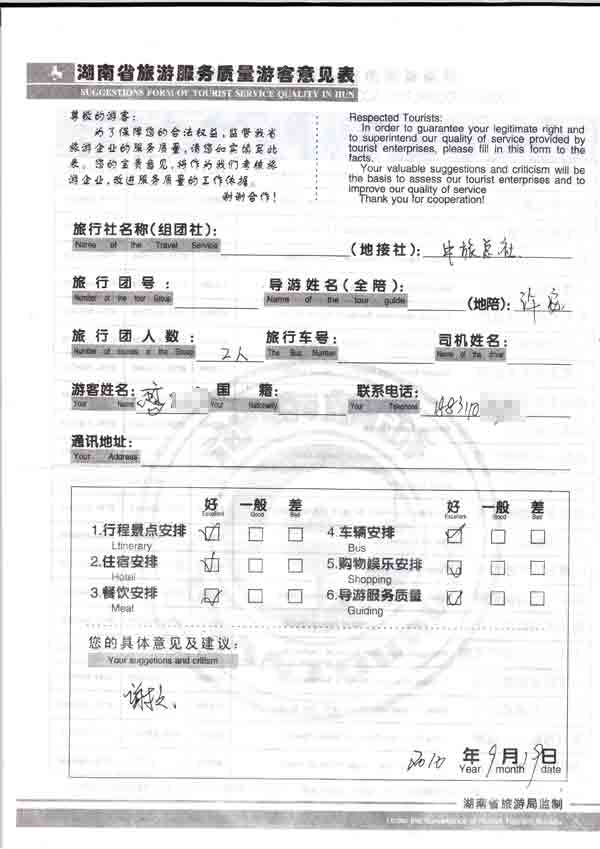 湖南省旅游服务质量游客意见表
SUGGESTIONS FORM OF TOURIST SERVICE QUALITY IN HUN
尊敬的游客：
为了保障您的合法权益，监督我省
旅游企业的服务质量，请您如实填写此
表。您的宝贵意见，将作为我们考核旅
游企业，改进服务质量的工作依据。
谢谢合作！
Respected Tourists:
In order to guarantee your legitimate right and
to superintend our quality of service provided by
tourist enterprises, please fill in this form to the
facts.
Your valuable suggestions and criticism will be
the basis to assess our tourist enterprises and to
improve our quality of service
Thank you for cooperation!
旅行社名称（组团社）：
Name of the Travel Service
（地接社）：
旅行团号：
Number of the tour Group
导游姓名（全陪）：
Name of the tour guide
（地陪）：许
旅行团人数： 2人
旅行车号：
The Bus Number
司机姓名：
Name of the driver
游客姓名：
Your Name
国籍：
Your Nationality
联系电话：
Your Telephone
通讯地址：
Your Address
好 一般 差 好 一般 差
Excellent Good Bad Excellent Good Bad
1.行程景点安排 4.车辆安排
Ltinerary Bus
2.住宿安排 5.购物娱乐安排
Hotel Shopping
3.餐饮安排 6.导游服务质量
Meat Guiding
您的具体意见及建议：
Your suggetions and critism
2010 年 9 月 19 日
Year month date
湖南省旅游局监制